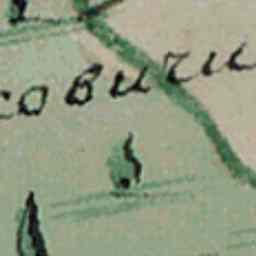 совичи